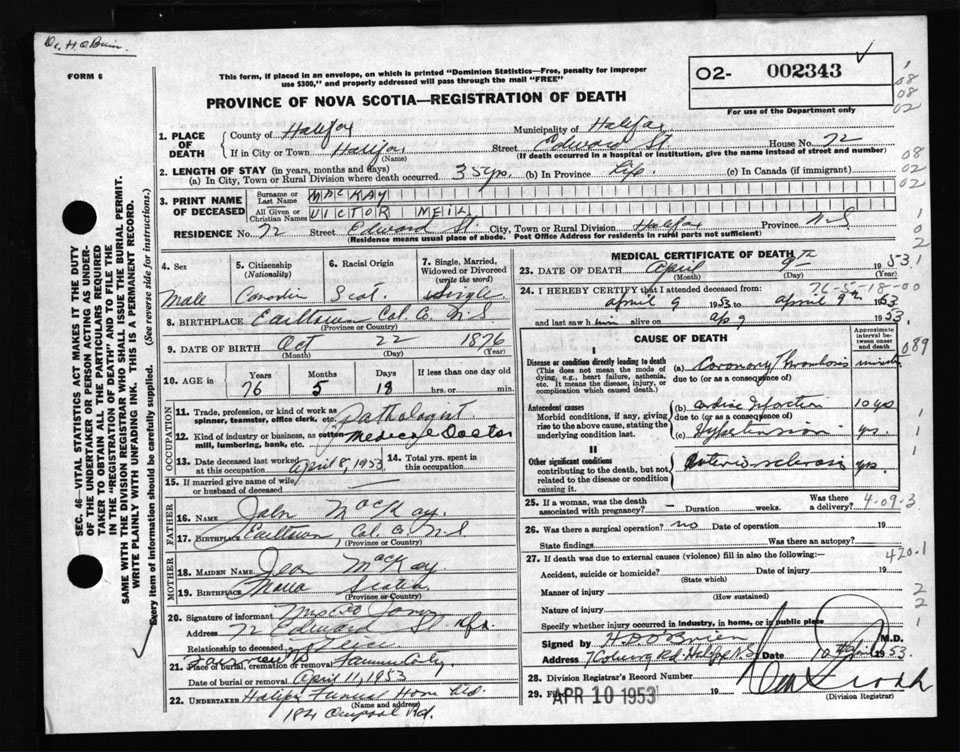 Dr. H. O'Brien.
FORM 6
This form, if placed in an envelope, on which is printed "Dominion Statistics—Free, penalty for improper
use $300," and properly addressed will pass through the mail "FREE"
02- 002343
For use of the Department only
PROVINCE OF NOVA SCOTIA—REGISTRATION OF DEATH
1. PLACE OF DEATH
County of Halifax Municipality of Halifax
If in City or Town Halifax Street Edward St House No. 72
(Name) (If death occurred in a hospital or institution, give the name instead of street and number)
2. LENGTH OF STAY (in years, months and days)
(a) In City, Town or Rural Division where death occurred 35 yrs. (b) In Province Life. (c) In Canada (if immigrant)
3. PRINT NAME OF DECEASED
Surname or Last Name MACKAY
All Given or Christian Names VICTOR NEIL
RESIDENCE No. 72 Street Edward St City, Town or Rural Division Halifax Province N-S
(Residence means usual place of abode. Post Office Address for residents in rural parts not sufficient)
4. Sex
Male
5. Citizenship (Nationality)
Canadian
6. Racial Origin
Scot.
7. Single, Married, Widowed or Divorced (write the word)
Single
8. BIRTHPLACE Earltown Col. Co. N S
(Province or Country)
9. DATE OF BIRTH Oct 22 1876
(Month) (Day) (Year)
10. AGE in
Years Months Days If less than one day old
76 5 18 hrs. or min.
OCCUPATION
11. Trade, profession, or kind of work as spinner, teamster, office clerk, etc. Pathologist
12. Kind of industry or business, as cotton mill, lumbering, bank, etc. Medical Doctor
13. Date deceased last worked at this occupation April 8, 1953
14. Total yrs. spent in this occupation
15. If married give name of wife or husband of deceased —
FATHER
16. Name John MacKay.
17. Birthplace Earltown Col. Co. N S
(Province or Country)
MOTHER
18. Maiden Name Jean MacKay
19. Birthplace Nova Scotia
(Province or Country)
20. Signature of informant Mrs
Address 72 Edward St Hfx.
21. Place of burial, cremation or removal
Date of burial or removal April 11, 1953
22. UNDERTAKER Halifax Funeral Home Ltd.
(Name and address)
184 Rd.
MEDICAL CERTIFICATE OF DEATH
23. DATE OF DEATH April 9th 1953
(Month) (Day) (Year)
76-5-18-00
24. I HEREBY CERTIFY that I attended deceased from
April 9 1953 to April 9th 1953
and last saw him alive on Ap 9 1953.
CAUSE OF DEATH
Approximate interval between onset and death
I
Disease or condition directly leading to death
(This does not mean the mode of dying, e.g., heart failure, asthenia, etc. It means the disease, injury, or complication which caused death.)
(a) Coronary Thrombosis minutes
due to (or as a consequence of)
Antecedent causes
Morbid conditions, if any, giving rise to the above cause, stating the underlying condition last.
(b) Cardiac Infarction 10 yrs
due to (or as a consequence of)
(c) Hypertension yrs.
II
Other significant conditions
contributing to the death, but not related to the disease or condition causing it.
Arteriosclerosis yrs.
25. If a woman, was the death associated with pregnancy? — Duration weeks. Was there a delivery?
4-09-3
26. Was there surgical operation? no Date of operation 19
State findings Was there an autopsy?
27. If death was due to external causes (violence) fill in also the following:—
420.1
Accident, suicide or homicide? Date of injury 19
(State which)
Manner of injury
(How sustained)
Nature of injury
Specify whether injury occurred in industry, in home, or in public place
Signed by H. D. O'Brien M.D.
Address 7 Coburg Rd Halifax N.S Date 10 April 1953
28. Division Registrar's Record Number
29. Filed APR 10 1953
(Division Registrar)
SEC. 46—VITAL STATISTICS ACT MAKES IT THE DUTY
OF THE UNDERTAKER OR PERSON ACTING AS UNDERTAKER
TO OBTAIN ALL THE PARTICULARS REQUIRED
IN THE "REGISTRATION OF DEATH" AND TO FILE THE
SAME WITH THE DIVISION REGISTRAR WHO SHALL ISSUE THE BURIAL PERMIT.
WRITE PLAINLY WITH UNFADING INK. THIS IS A PERMANENT RECORD.
Every item of information should be carefully supplied. (See reverse side for instructions.)
1
08
08
02
08
02
02
1
0
2
1
089
1
1
1
2
2
1